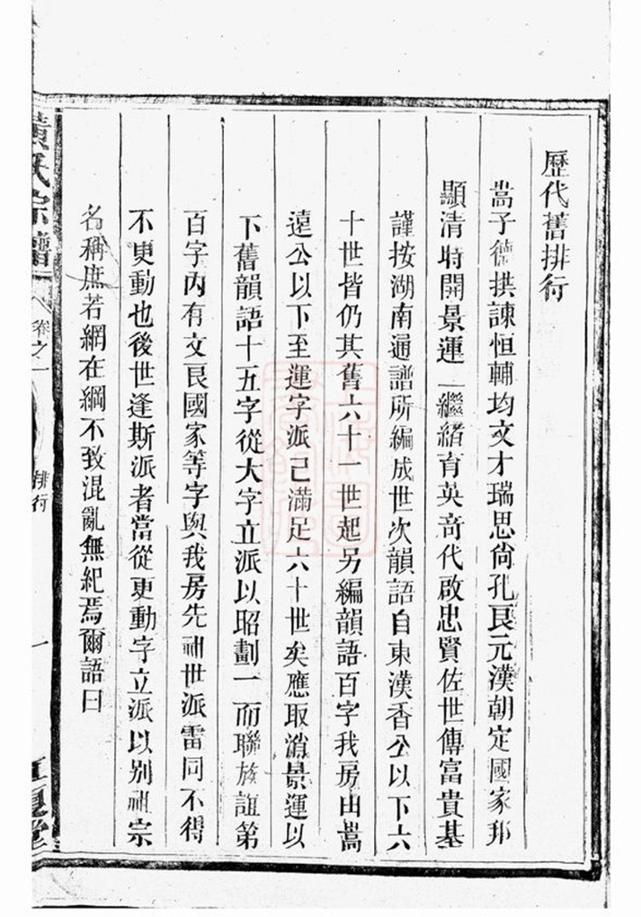 歷代舊排行
嵩子德拱諫恒輔均文才瑞思尙孔良元漢朝定國家邦
顯清時開景運 繼緒育英奇代啟忠賢佐世傳富貴基
謹按湖南通譜所編成世次韻語自東漢香公以下六
十世皆仍其舊六十一世起另編韻語百字我房由嵩
遠公以下至運字派已滿足六十世矣應取消景運以
下舊韻語十五字從大字立派以昭劃一而聯族誼第
百字內有文民國家等字與我房先祖世派雷同不得
不更動也後世逢斯派者當從更動字立派以別祖宗
名稱庶若網在綱不致混亂無紀焉爾語曰
黃氏宗譜 卷之一 排行 一 江夏堂